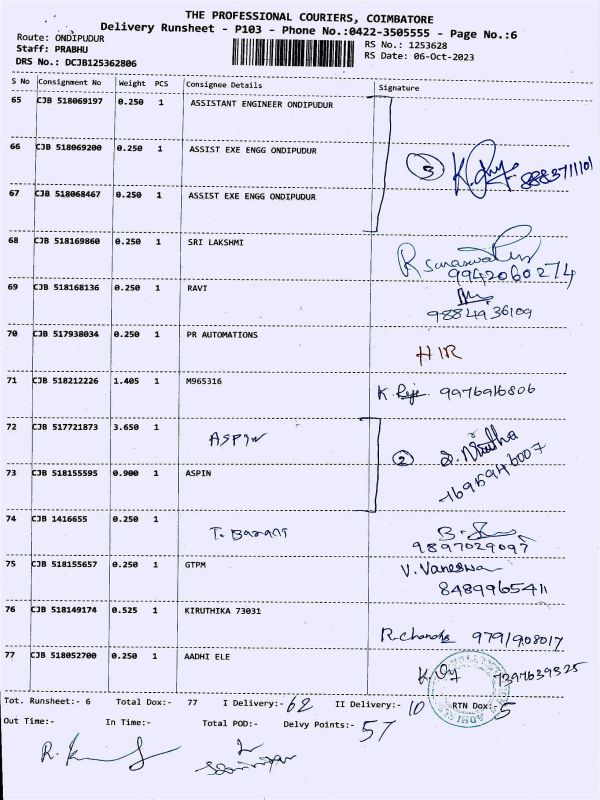 THE PROFESSIONAL COURIERS, COIMBATORE
Delivery Runsheet - P103 - Phone No.:0422-3505555 - Page No.:6
Route: ONDIPUDUR
Staff: PRABHU
DRS No.: DCJB125362806
RS No.: 1253628
RS Date: 06-Oct-2023
S No Consignment No Weight PCS Consignee Details Signature
65 CJB 518069197 0.250 1 ASSISTANT ENGINEER ONDIPUDUR
66 CJB 518069200 0.250 1 ASSIST EXE ENGG ONDIPUDUR 3 8883711101
67 CJB 518068467 0.250 1 ASSIST EXE ENGG ONDIPUDUR
68 CJB 518169860 0.250 1 SRI LAKSHMI
9942060274
69 CJB 518168136 0.250 1 RAVI
9884936109
70 CJB 517938034 0.250 1 PR AUTOMATIONS
HIR
71 CJB 518212226 1.405 1 M965316
9976916806
72 CJB 517721873 3.650 1 ASPIN
2
73 CJB 518155595 0.900 1 ASPIN
74 CJB 1416655 0.250 1 T.
9897029097
75 CJB 518155657 0.250 1 GTPM
V.
8489965411
76 CJB 518149174 0.525 1 KIRUTHIKA 73031
9791908017
77 CJB 518052700 0.250 1 AADHI ELE
7397639325
Tot. Runsheet:- 6 Total Dox:- 77 I Delivery:- 62 II Delivery:- 10 RTN Dox:- 5
Out Time:- In Time:- Total POD:- Delvy Points:- 57